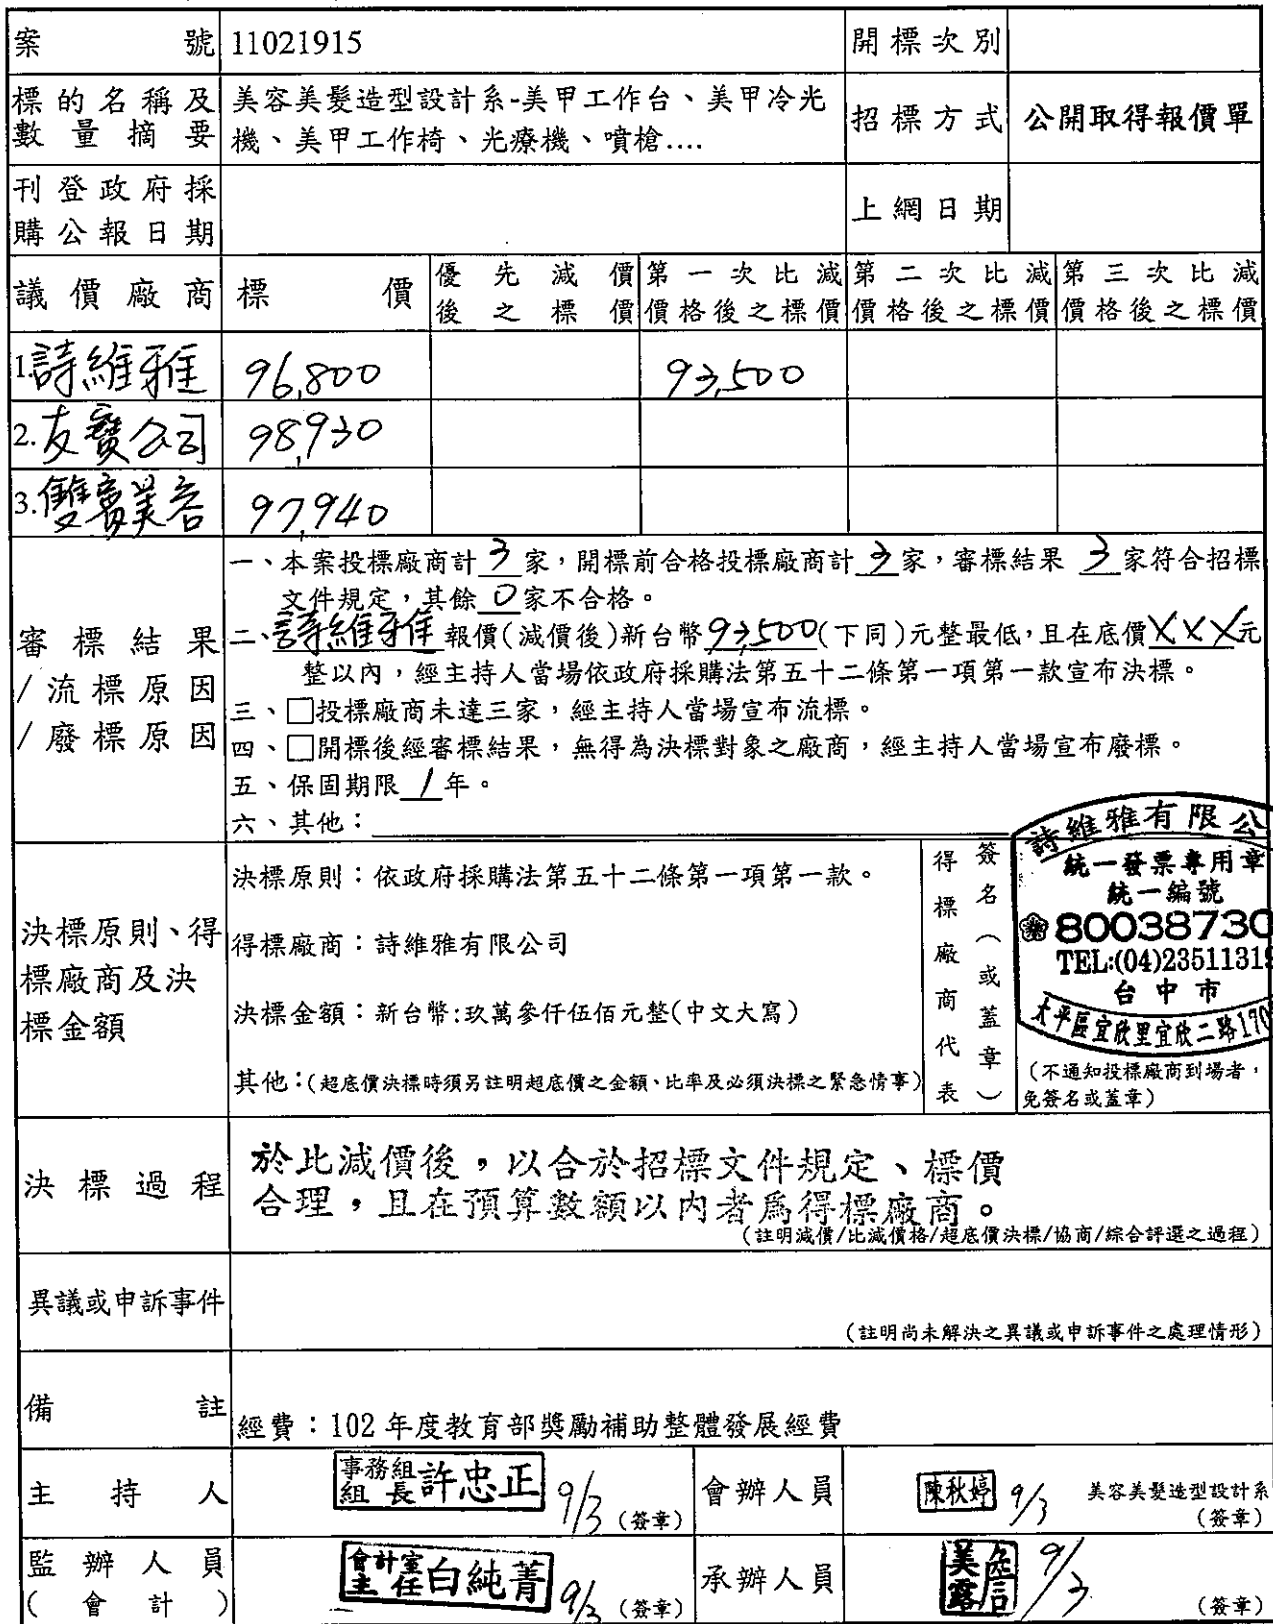 案號 11021915 開標次別
標的名稱及數量摘要 美容美髮造型設計系-美甲工作台、美甲冷光
機、美甲工作椅、光療機、噴槍....
招標方式 公開取得報價單
刊登政府採
購公報日期
上網日期
議價廠商 標價 優先減價後之標價 第一次比減價格後之標價 第二次比減價格後之標價 第三次比減價格後之標價
1.詩維雅 96,800 93,500
2.友寶公司 98,930
3.雙賓美容 97,940
審標結果
/流標原因
/廢標原因
一、本案投標廠商計 3 家，開標前合格投標廠商計 3 家，審標結果 3 家符合招標
文件規定，其餘 0 家不合格。
二、詩維雅 報價(減價後)新台幣93,500(下同)元整最低，且在底價XXX元
整以內，經主持人當場依政府採購法第五十二條第一項第一款宣布決標。
三、□投標廠商未達三家，經主持人當場宣布流標。
四、□開標後經審標結果，無得為決標對象之廠商，經主持人當場宣布廢標。
五、保固期限 1 年。
六、其他：
決標原則、得
標廠商及決
標金額
決標原則：依政府採購法第五十二條第一項第一款。
得標廠商：詩維雅有限公司
決標金額：新台幣:玖萬參仟伍佰元整(中文大寫)
其他：(超底價決標時須另註明超底價之金額、比率及必須決標之緊急情事)
得標廠商代表
簽名（或蓋章）
詩維雅有限公
統一發票專用章
統一編號
80038730
TEL:(04)23511319
台中市
太平區宜欣里宜欣二路170
(不通知投標廠商到場者，
免簽名或蓋章)
決標過程
於比減價後，以合於招標文件規定、標價
合理，且在預算數額以內者爲得標廠商。
(註明減價/比減價格/超底價決標/協商/綜合評選之過程)
異議或申訴事件
(註明尚未解決之異議或申訴事件之處理情形)
備註
經費：102年度教育部獎勵補助整體發展經費
主持人 事務組組長 許忠正 9/3 (簽章) 會辦人員 陳秋婷 9/3 美容美髮造型設計系
(簽章)
監辦人員
(會計) 會計室主任 白純菁 9/3 (簽章) 承辦人員 詹美露 9/3 (簽章)